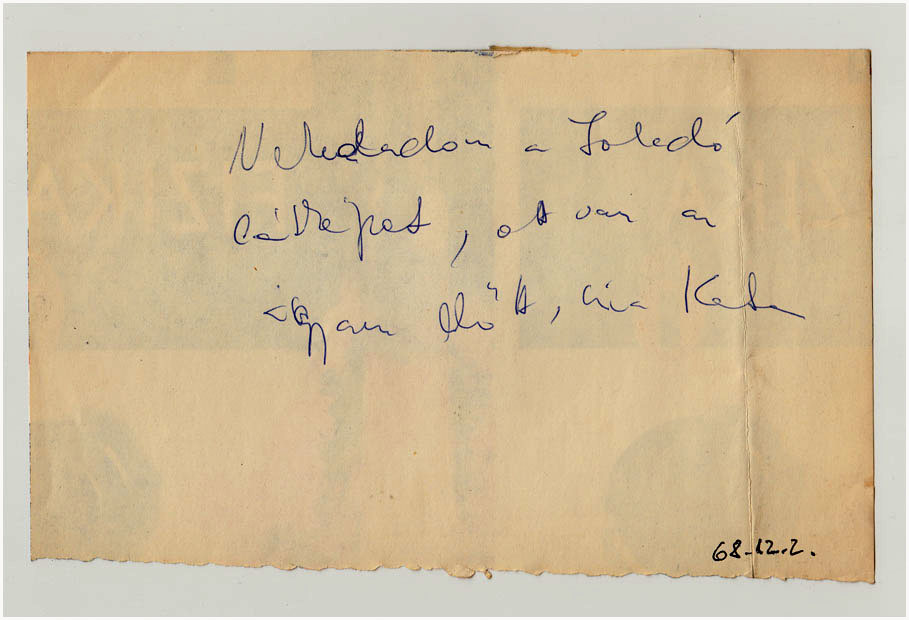 Neked adom a Toledó
látképet, ott van az
ágyam előtt, Kata
68.12.2.